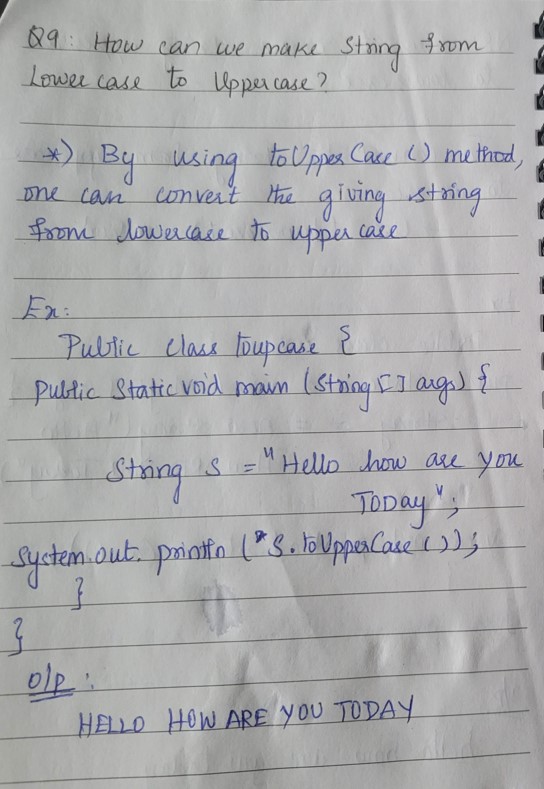 Q9: How can we make String from
Lower case to Uppercase?
*) By using toUpperCase () method,
one can convert the giving string
from lowercase to upper case
Ex:
Public class Toupcase {
Public Static void main (String [] args) {
String S = "Hello how are you
TODay";
System.out. println (*S.toUpperCase ());
}
}
O/P:
HELLO HOW ARE YOU TODAY